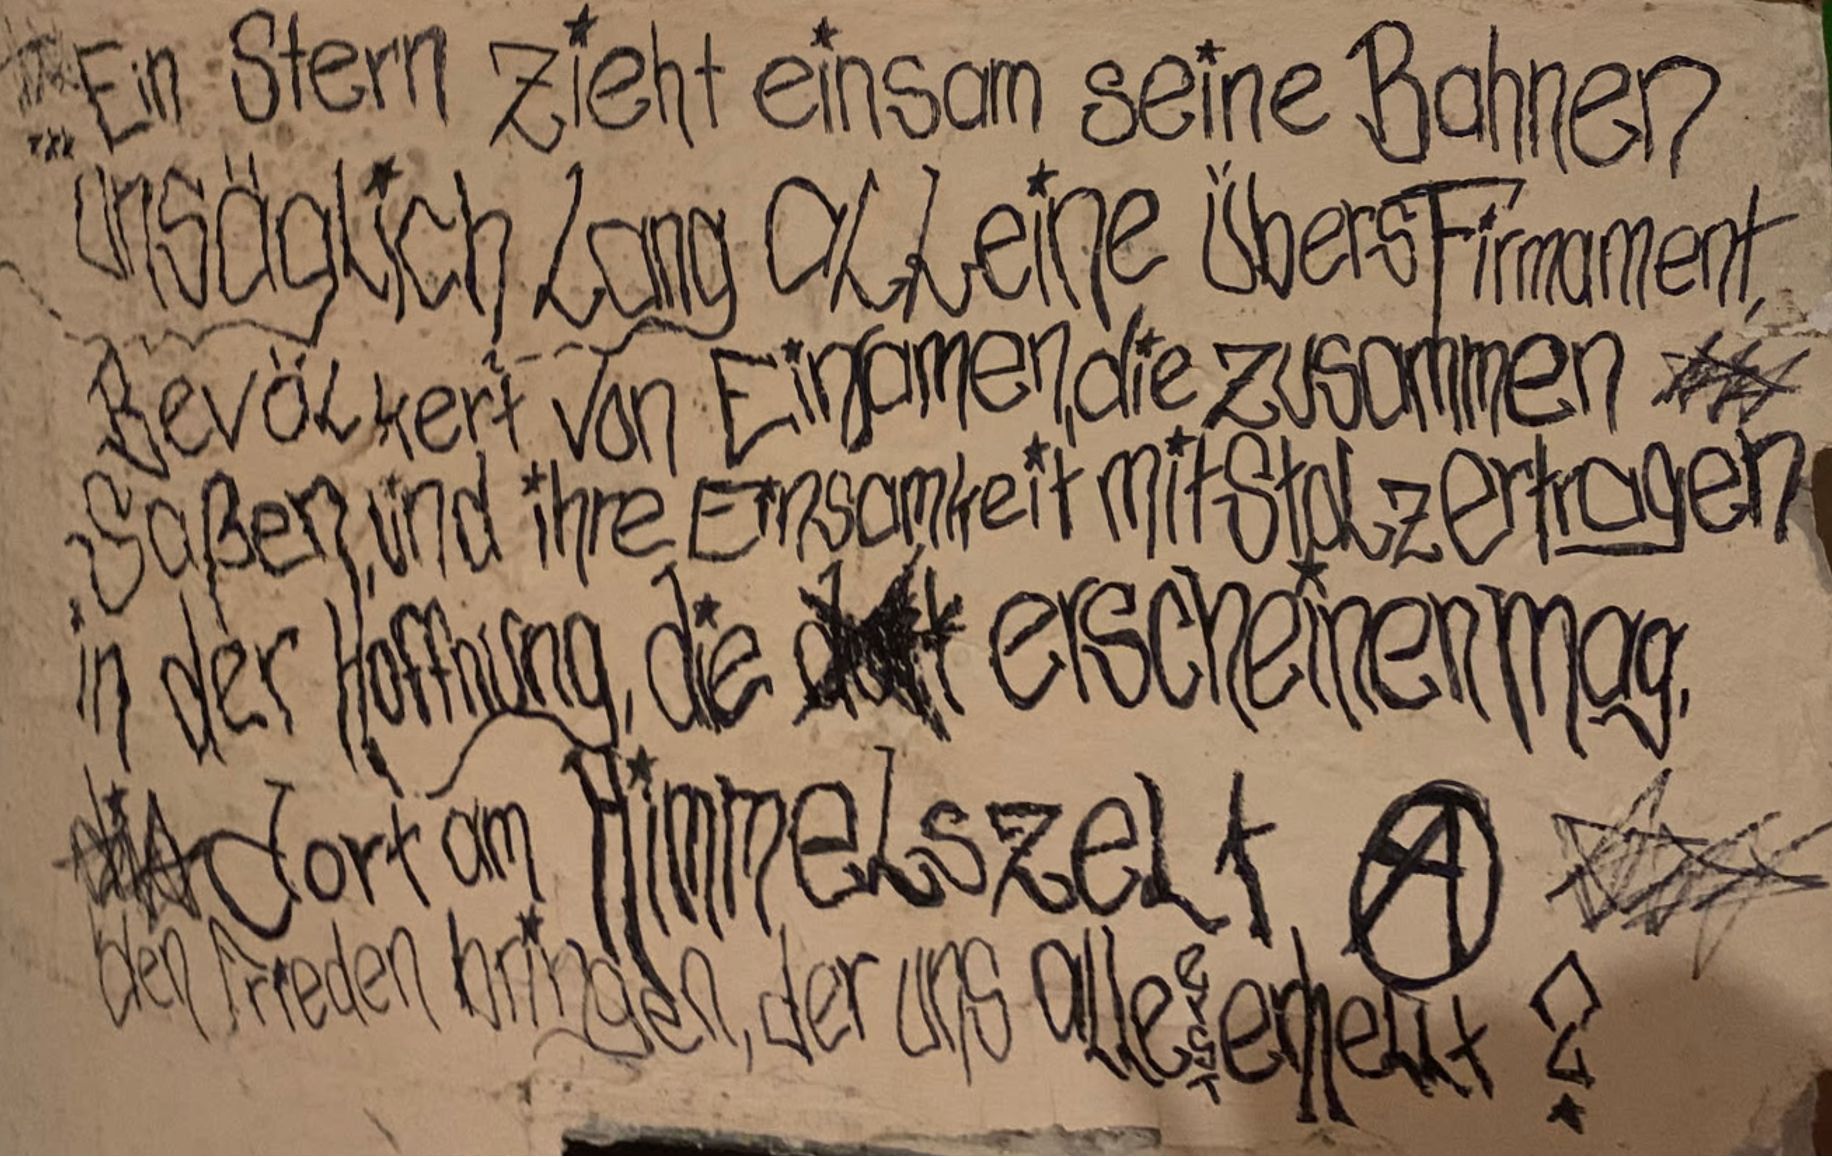 Ein Stern zieht einsam seine Bahnen
unsäglich lang alleine übers Firmament,
Bevölkert von Einsamen, die zusammen
saßen, und ihre Einsamkeit mit Stolz ertragen
in der Hoffnung, die erscheinen mag,
dort am Himmelszelt
den Frieden bringen, der uns alle erst erhellt?